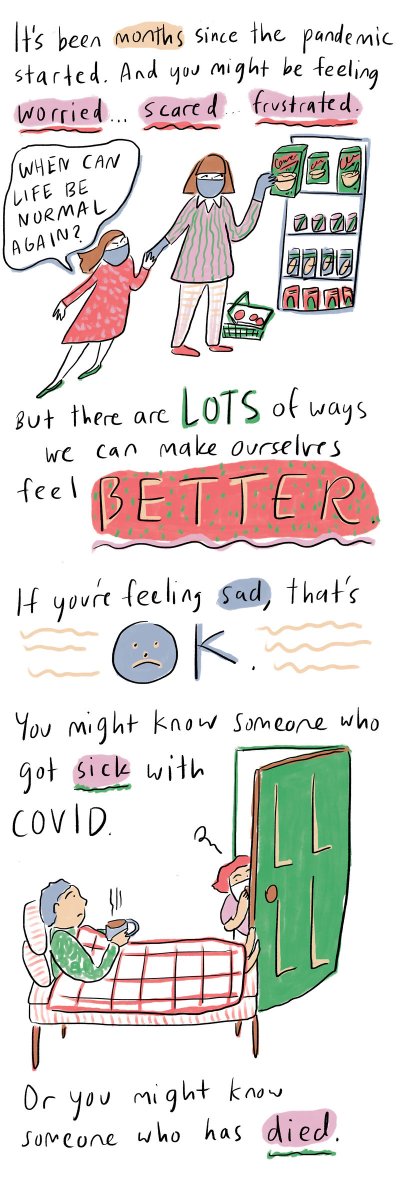 It's been months since the pandemic
started. And you might be feeling
worried... scared... frustrated.
WHEN CAN
LIFE BE
NORMAL
AGAIN?
But there are LOTS of ways
we can make ourselves
feel BETTER.
If you're feeling sad, that's
OK.
You might know someone who
got sick with
COVID.
Or you might know
someone who has died.